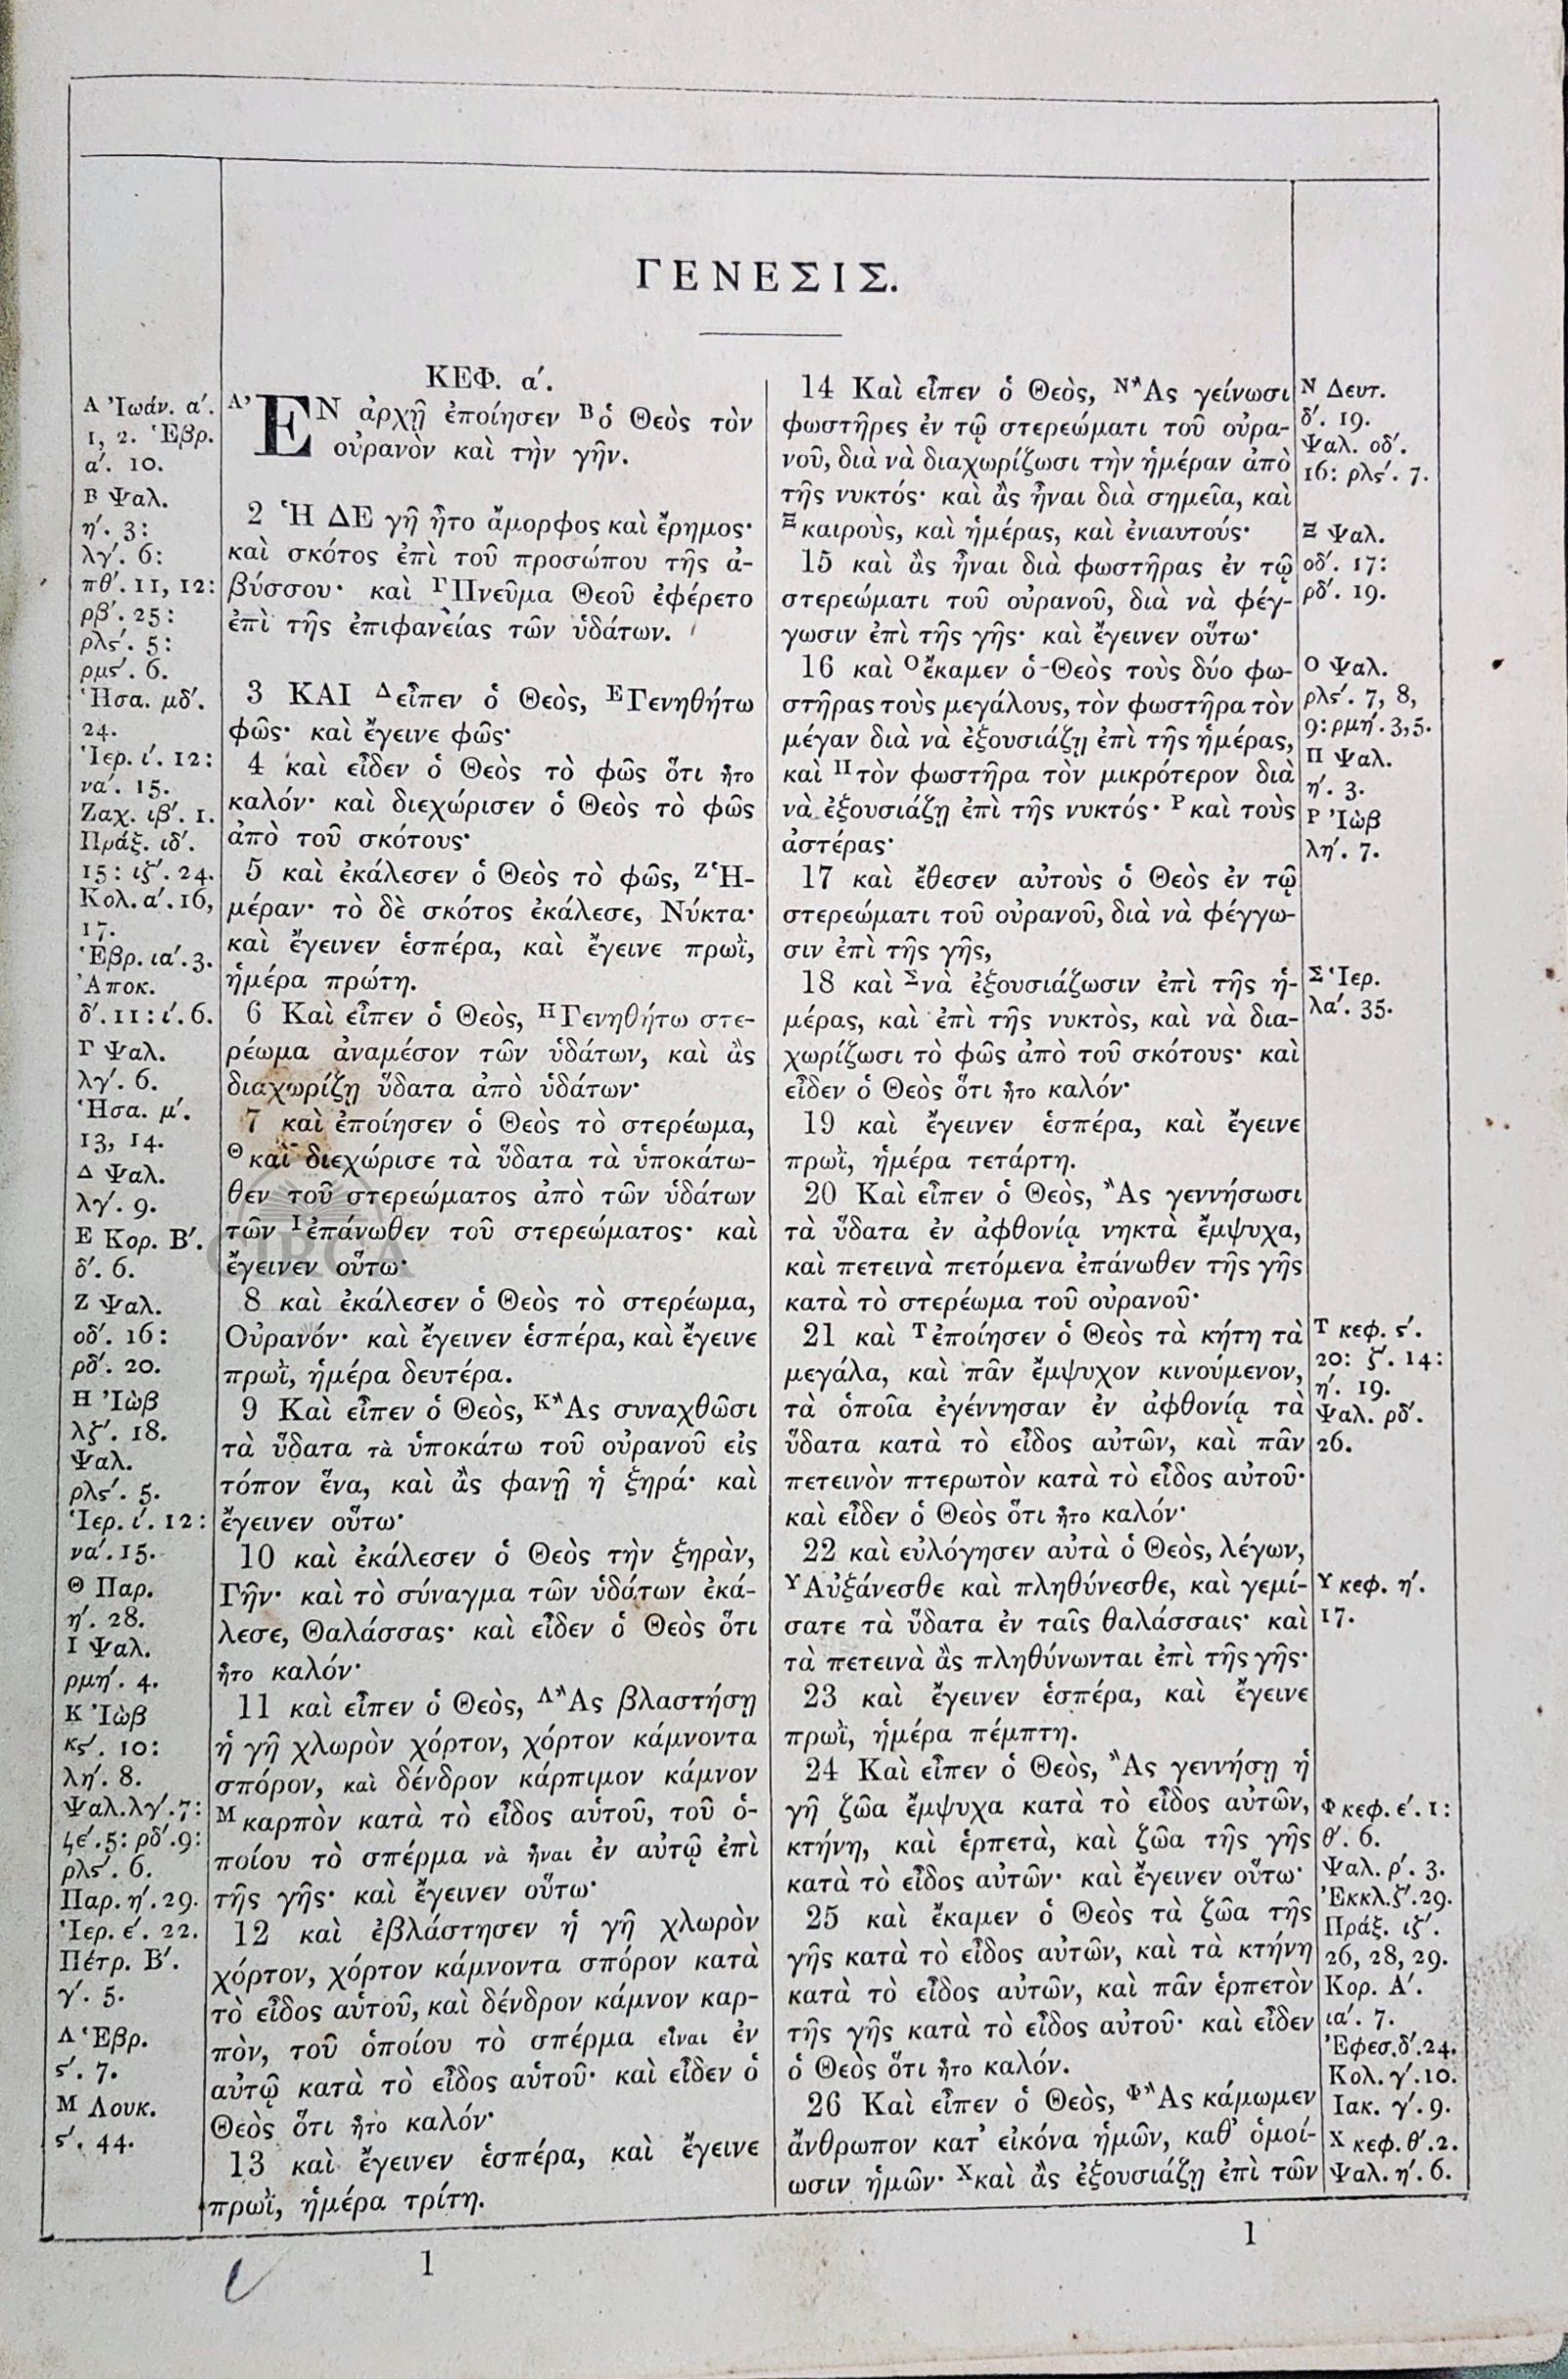 ΓΕΝΕΣΙΣ.
Α Ἰωάν. α΄.
1, 2. Ἑβρ.
α΄. 10.
Β Ψαλ.
η΄. 3:
λγ΄. 6:
πθ΄. 11, 12:
ρβ΄. 25:
ρλϛ΄. 5:
ρμϛ΄. 6.
Ἡσα. μδ΄.
24.
Ἱερ. ι΄. 12:
να΄. 15.
Ζαχ. ιβ΄. 1.
Πράξ. ιδ΄.
15: ιζ΄. 24.
Κολ. α΄. 16,
17.
Ἑβρ. ια΄. 3.
Ἀποκ.
δ΄. 11: ι΄. 6.
Γ Ψαλ.
λγ΄. 6.
Ἡσα. μ΄.
13, 14.
Δ Ψαλ.
λγ΄. 9.
Ε Κορ. Β΄.
δ΄. 6.
Ζ Ψαλ.
οδ΄. 16:
ρδ΄. 20.
Η Ἰὼβ
λζ΄. 18.
Ψαλ.
ρλϛ΄. 5.
Ἱερ. ι΄. 12:
να΄. 15.
Θ Παρ.
η΄. 28.
Ι Ψαλ.
ρμη΄. 4.
Κ Ἰὼβ
κϛ΄. 10:
λη΄. 8.
Ψαλ. λγ΄. 7:
ϟε΄. 5: ρδ΄. 9:
ρλϛ΄. 6.
Παρ. η΄. 29.
Ἱερ. ε΄. 22.
Πέτρ. Β΄.
γ΄. 5.
Λ Ἑβρ.
ϛ΄. 7.
Μ Λουκ.
ϛ΄. 44.
ΚΕΦ. α΄.
Α ἘΝ ἀρχῇ ἐποίησεν Β ὁ Θεὸς τὸν
οὐρανὸν καὶ τὴν γῆν.
2 Ἡ ΔΕ γῆ ἦτο ἄμορφος καὶ ἔρημος·
καὶ σκότος ἐπὶ τοῦ προσώπου τῆς ἀ-
βύσσου· καὶ Γ Πνεῦμα Θεοῦ ἐφέρετο
ἐπὶ τῆς ἐπιφανείας τῶν ὑδάτων.
3 ΚΑΙ Δ εἶπεν ὁ Θεὸς, Ε Γενηθήτω
φῶς· καὶ ἔγεινε φῶς·
4 καὶ εἶδεν ὁ Θεὸς τὸ φῶς ὅτι ἦτο
καλόν· καὶ διεχώρισεν ὁ Θεὸς τὸ φῶς
ἀπὸ τοῦ σκότους·
5 καὶ ἐκάλεσεν ὁ Θεὸς τὸ φῶς, Ζ Ἡ-
μέραν· τὸ δὲ σκότος ἐκάλεσε, Νύκτα·
καὶ ἔγεινεν ἑσπέρα, καὶ ἔγεινε πρωῒ,
ἡμέρα πρώτη.
6 Καὶ εἶπεν ὁ Θεὸς, Η Γενηθήτω στε-
ρέωμα ἀναμέσον τῶν ὑδάτων, καὶ ἂς
διαχωρίζῃ ὕδατα ἀπὸ ὑδάτων·
7 καὶ ἐποίησεν ὁ Θεὸς τὸ στερέωμα,
Θ καὶ διεχώρισε τὰ ὕδατα τὰ ὑποκάτω-
θεν τοῦ στερεώματος ἀπὸ τῶν ὑδάτων
τῶν Ι ἐπάνωθεν τοῦ στερεώματος· καὶ
ἔγεινεν οὕτω·
8 καὶ ἐκάλεσεν ὁ Θεὸς τὸ στερέωμα,
Οὐρανόν· καὶ ἔγεινεν ἑσπέρα, καὶ ἔγεινε
πρωῒ, ἡμέρα δευτέρα.
9 Καὶ εἶπεν ὁ Θεὸς, Κ Ἂς συναχθῶσι
τὰ ὕδατα τὰ ὑποκάτω τοῦ οὐρανοῦ εἰς
τόπον ἕνα, καὶ ἂς φανῇ ἡ ξηρά· καὶ
ἔγεινεν οὕτω·
10 καὶ ἐκάλεσεν ὁ Θεὸς τὴν ξηρὰν,
Γῆν· καὶ τὸ σύναγμα τῶν ὑδάτων ἐκά-
λεσε, Θαλάσσας· καὶ εἶδεν ὁ Θεὸς ὅτι
ἦτο καλόν·
11 καὶ εἶπεν ὁ Θεὸς, Λ Ἂς βλαστήσῃ
ἡ γῆ χλωρὸν χόρτον, χόρτον κάμνοντα
σπόρον, καὶ δένδρον κάρπιμον κάμνον
Μ καρπὸν κατὰ τὸ εἶδος αὑτοῦ, τοῦ ὁ-
ποίου τὸ σπέρμα νὰ ἦναι ἐν αὐτῷ ἐπὶ
τῆς γῆς· καὶ ἔγεινεν οὕτω·
12 καὶ ἐβλάστησεν ἡ γῆ χλωρὸν
χόρτον, χόρτον κάμνοντα σπόρον κατὰ
τὸ εἶδος αὑτοῦ, καὶ δένδρον κάμνον καρ-
πὸν, τοῦ ὁποίου τὸ σπέρμα εἶναι ἐν
αὐτῷ κατὰ τὸ εἶδος αὑτοῦ· καὶ εἶδεν ὁ
Θεὸς ὅτι ἦτο καλόν·
13 καὶ ἔγεινεν ἑσπέρα, καὶ ἔγεινε
πρωῒ, ἡμέρα τρίτη.
14 Καὶ εἶπεν ὁ Θεὸς, Ν Ἂς γείνωσι
φωστῆρες ἐν τῷ στερεώματι τοῦ οὐρα-
νοῦ, διὰ νὰ διαχωρίζωσι τὴν ἡμέραν ἀπὸ
τῆς νυκτός· καὶ ἂς ἦναι διὰ σημεῖα, καὶ
Ξ καιροὺς, καὶ ἡμέρας, καὶ ἐνιαυτούς·
15 καὶ ἂς ἦναι διὰ φωστῆρας ἐν τῷ
στερεώματι τοῦ οὐρανοῦ, διὰ νὰ φέγ-
γωσιν ἐπὶ τῆς γῆς· καὶ ἔγεινεν οὕτω·
16 καὶ Ο ἔκαμεν ὁ Θεὸς τοὺς δύο φω-
στῆρας τοὺς μεγάλους, τὸν φωστῆρα τὸν
μέγαν διὰ νὰ ἐξουσιάζῃ ἐπὶ τῆς ἡμέρας,
καὶ Π τὸν φωστῆρα τὸν μικρότερον διὰ
νὰ ἐξουσιάζῃ ἐπὶ τῆς νυκτός· Ρ καὶ τοὺς
ἀστέρας·
17 καὶ ἔθεσεν αὐτοὺς ὁ Θεὸς ἐν τῷ
στερεώματι τοῦ οὐρανοῦ, διὰ νὰ φέγγω-
σιν ἐπὶ τῆς γῆς,
18 καὶ Σ νὰ ἐξουσιάζωσιν ἐπὶ τῆς ἡ-
μέρας, καὶ ἐπὶ τῆς νυκτὸς, καὶ νὰ δια-
χωρίζωσι τὸ φῶς ἀπὸ τοῦ σκότους· καὶ
εἶδεν ὁ Θεὸς ὅτι ἦτο καλόν·
19 καὶ ἔγεινεν ἑσπέρα, καὶ ἔγεινε
πρωῒ, ἡμέρα τετάρτη.
20 Καὶ εἶπεν ὁ Θεὸς, Ἂς γεννήσωσι
τὰ ὕδατα ἐν ἀφθονίᾳ νηκτὰ ἔμψυχα,
καὶ πετεινὰ πετόμενα ἐπάνωθεν τῆς γῆς
κατὰ τὸ στερέωμα τοῦ οὐρανοῦ·
21 καὶ Τ ἐποίησεν ὁ Θεὸς τὰ κήτη τὰ
μεγάλα, καὶ πᾶν ἔμψυχον κινούμενον,
τὰ ὁποῖα ἐγέννησαν ἐν ἀφθονίᾳ τὰ
ὕδατα κατὰ τὸ εἶδος αὐτῶν, καὶ πᾶν
πετεινὸν πτερωτὸν κατὰ τὸ εἶδος αὐτοῦ·
καὶ εἶδεν ὁ Θεὸς ὅτι ἦτο καλόν·
22 καὶ εὐλόγησεν αὐτὰ ὁ Θεὸς, λέγων,
Υ Αὐξάνεσθε καὶ πληθύνεσθε, καὶ γεμί-
σατε τὰ ὕδατα ἐν ταῖς θαλάσσαις· καὶ
τὰ πετεινὰ ἂς πληθύνωνται ἐπὶ τῆς γῆς·
23 καὶ ἔγεινεν ἑσπέρα, καὶ ἔγεινε
πρωῒ, ἡμέρα πέμπτη.
24 Καὶ εἶπεν ὁ Θεὸς, Ἂς γεννήσῃ ἡ
γῆ ζῶα ἔμψυχα κατὰ τὸ εἶδος αὐτῶν,
κτήνη, καὶ ἑρπετὰ, καὶ ζῶα τῆς γῆς
κατὰ τὸ εἶδος αὐτῶν· καὶ ἔγεινεν οὕτω·
25 καὶ ἔκαμεν ὁ Θεὸς τὰ ζῶα τῆς
γῆς κατὰ τὸ εἶδος αὐτῶν, καὶ τὰ κτήνη
κατὰ τὸ εἶδος αὐτῶν, καὶ πᾶν ἑρπετὸν
τῆς γῆς κατὰ τὸ εἶδος αὐτοῦ· καὶ εἶδεν
ὁ Θεὸς ὅτι ἦτο καλόν.
26 Καὶ εἶπεν ὁ Θεὸς, Φ Ἂς κάμωμεν
ἄνθρωπον κατ᾽ εἰκόνα ἡμῶν, καθ᾽ ὁμοί-
ωσιν ἡμῶν· Χ καὶ ἂς ἐξουσιάζῃ ἐπὶ τῶν
Ν Δευτ.
δ΄. 19.
Ψαλ. οδ΄.
16: ρλϛ΄. 7.
Ξ Ψαλ.
οδ΄. 17:
ρδ΄. 19.
Ο Ψαλ.
ρλϛ΄. 7, 8,
9: ρμη΄. 3, 5.
Π Ψαλ.
η΄. 3.
Ρ Ἰὼβ
λη΄. 7.
Σ Ἱερ.
λα΄. 35.
Τ κεφ. ϛ΄.
20: ζ΄. 14:
η΄. 19.
Ψαλ. ρδ΄.
26.
Υ κεφ. η΄.
17.
Φ κεφ. ε΄. 1:
θ΄. 6.
Ψαλ. ρ΄. 3.
Ἐκκλ. ζ΄. 29.
Πράξ. ιζ΄.
26, 28, 29.
Κορ. Α΄.
ια΄. 7.
Ἐφεσ. δ΄. 24.
Κολ. γ΄. 10.
Ιακ. γ΄. 9.
Χ κεφ. θ΄. 2.
Ψαλ. η΄. 6.
1
1
CIRCA